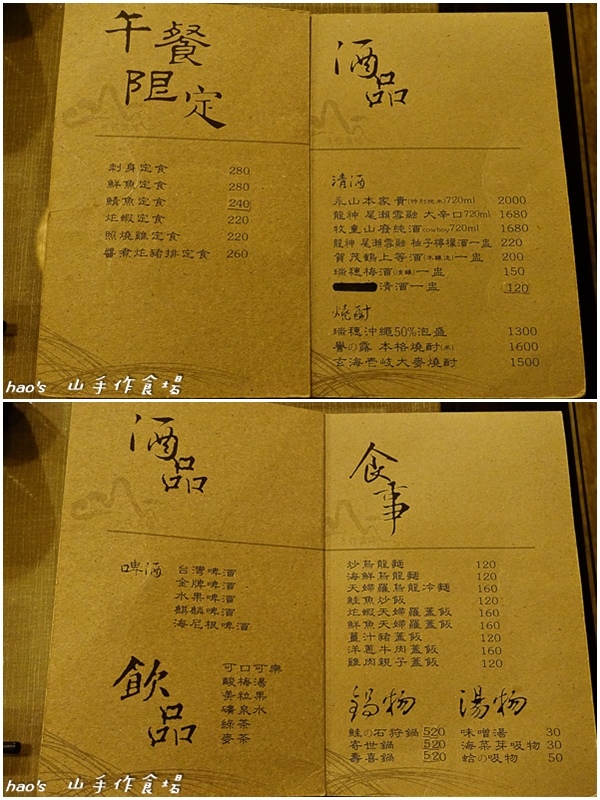 午餐
限定
刺身定食 280
鮮魚定食 280
鯖魚定食 240
炸蝦定食 220
照燒雞定食 220
醬煮炸豬排定食 260
酒品
清酒
永山本家 貴(特別純米)720ml 2000
龍神 尾瀨雪融 大辛口720ml 1680
牧童山廢純酒(cowboy)720ml 1680
龍神 尾瀨雪融 柚子檸檬酒一盅 220
賀茂鶴上等酒(本釀造)一盅 200
瑞穗梅酒(清釀)一盅 150
清酒一盅 120
燒酎
瑞穗沖繩50%泡盛 1300
譽の露 本格燒酎(米) 1600
玄海壱岐大麥燒酎 1500
hao's 山手作食場
酒品
啤酒
台灣啤酒
金牌啤酒
水果啤酒
麒麟啤酒
海尼根啤酒
飲品
可口可樂
酸梅湯
美粒果
礦泉水
綠茶
麥茶
食事
炒烏龍麵 120
海鮮烏龍麵 120
天婦羅烏龍冷麵 160
鮭魚炒飯 120
炸蝦天婦羅蓋飯 160
鮮魚天婦羅蓋飯 160
薑汁豬蓋飯 120
洋蔥牛肉蓋飯 160
雞肉親子蓋飯 120
鍋物
鮭の石狩鍋 520
寄世鍋 520
壽喜鍋 520
湯物
味噌湯 30
海菜芽吸物 30
蛤の吸物 50
hao's 山手作食場